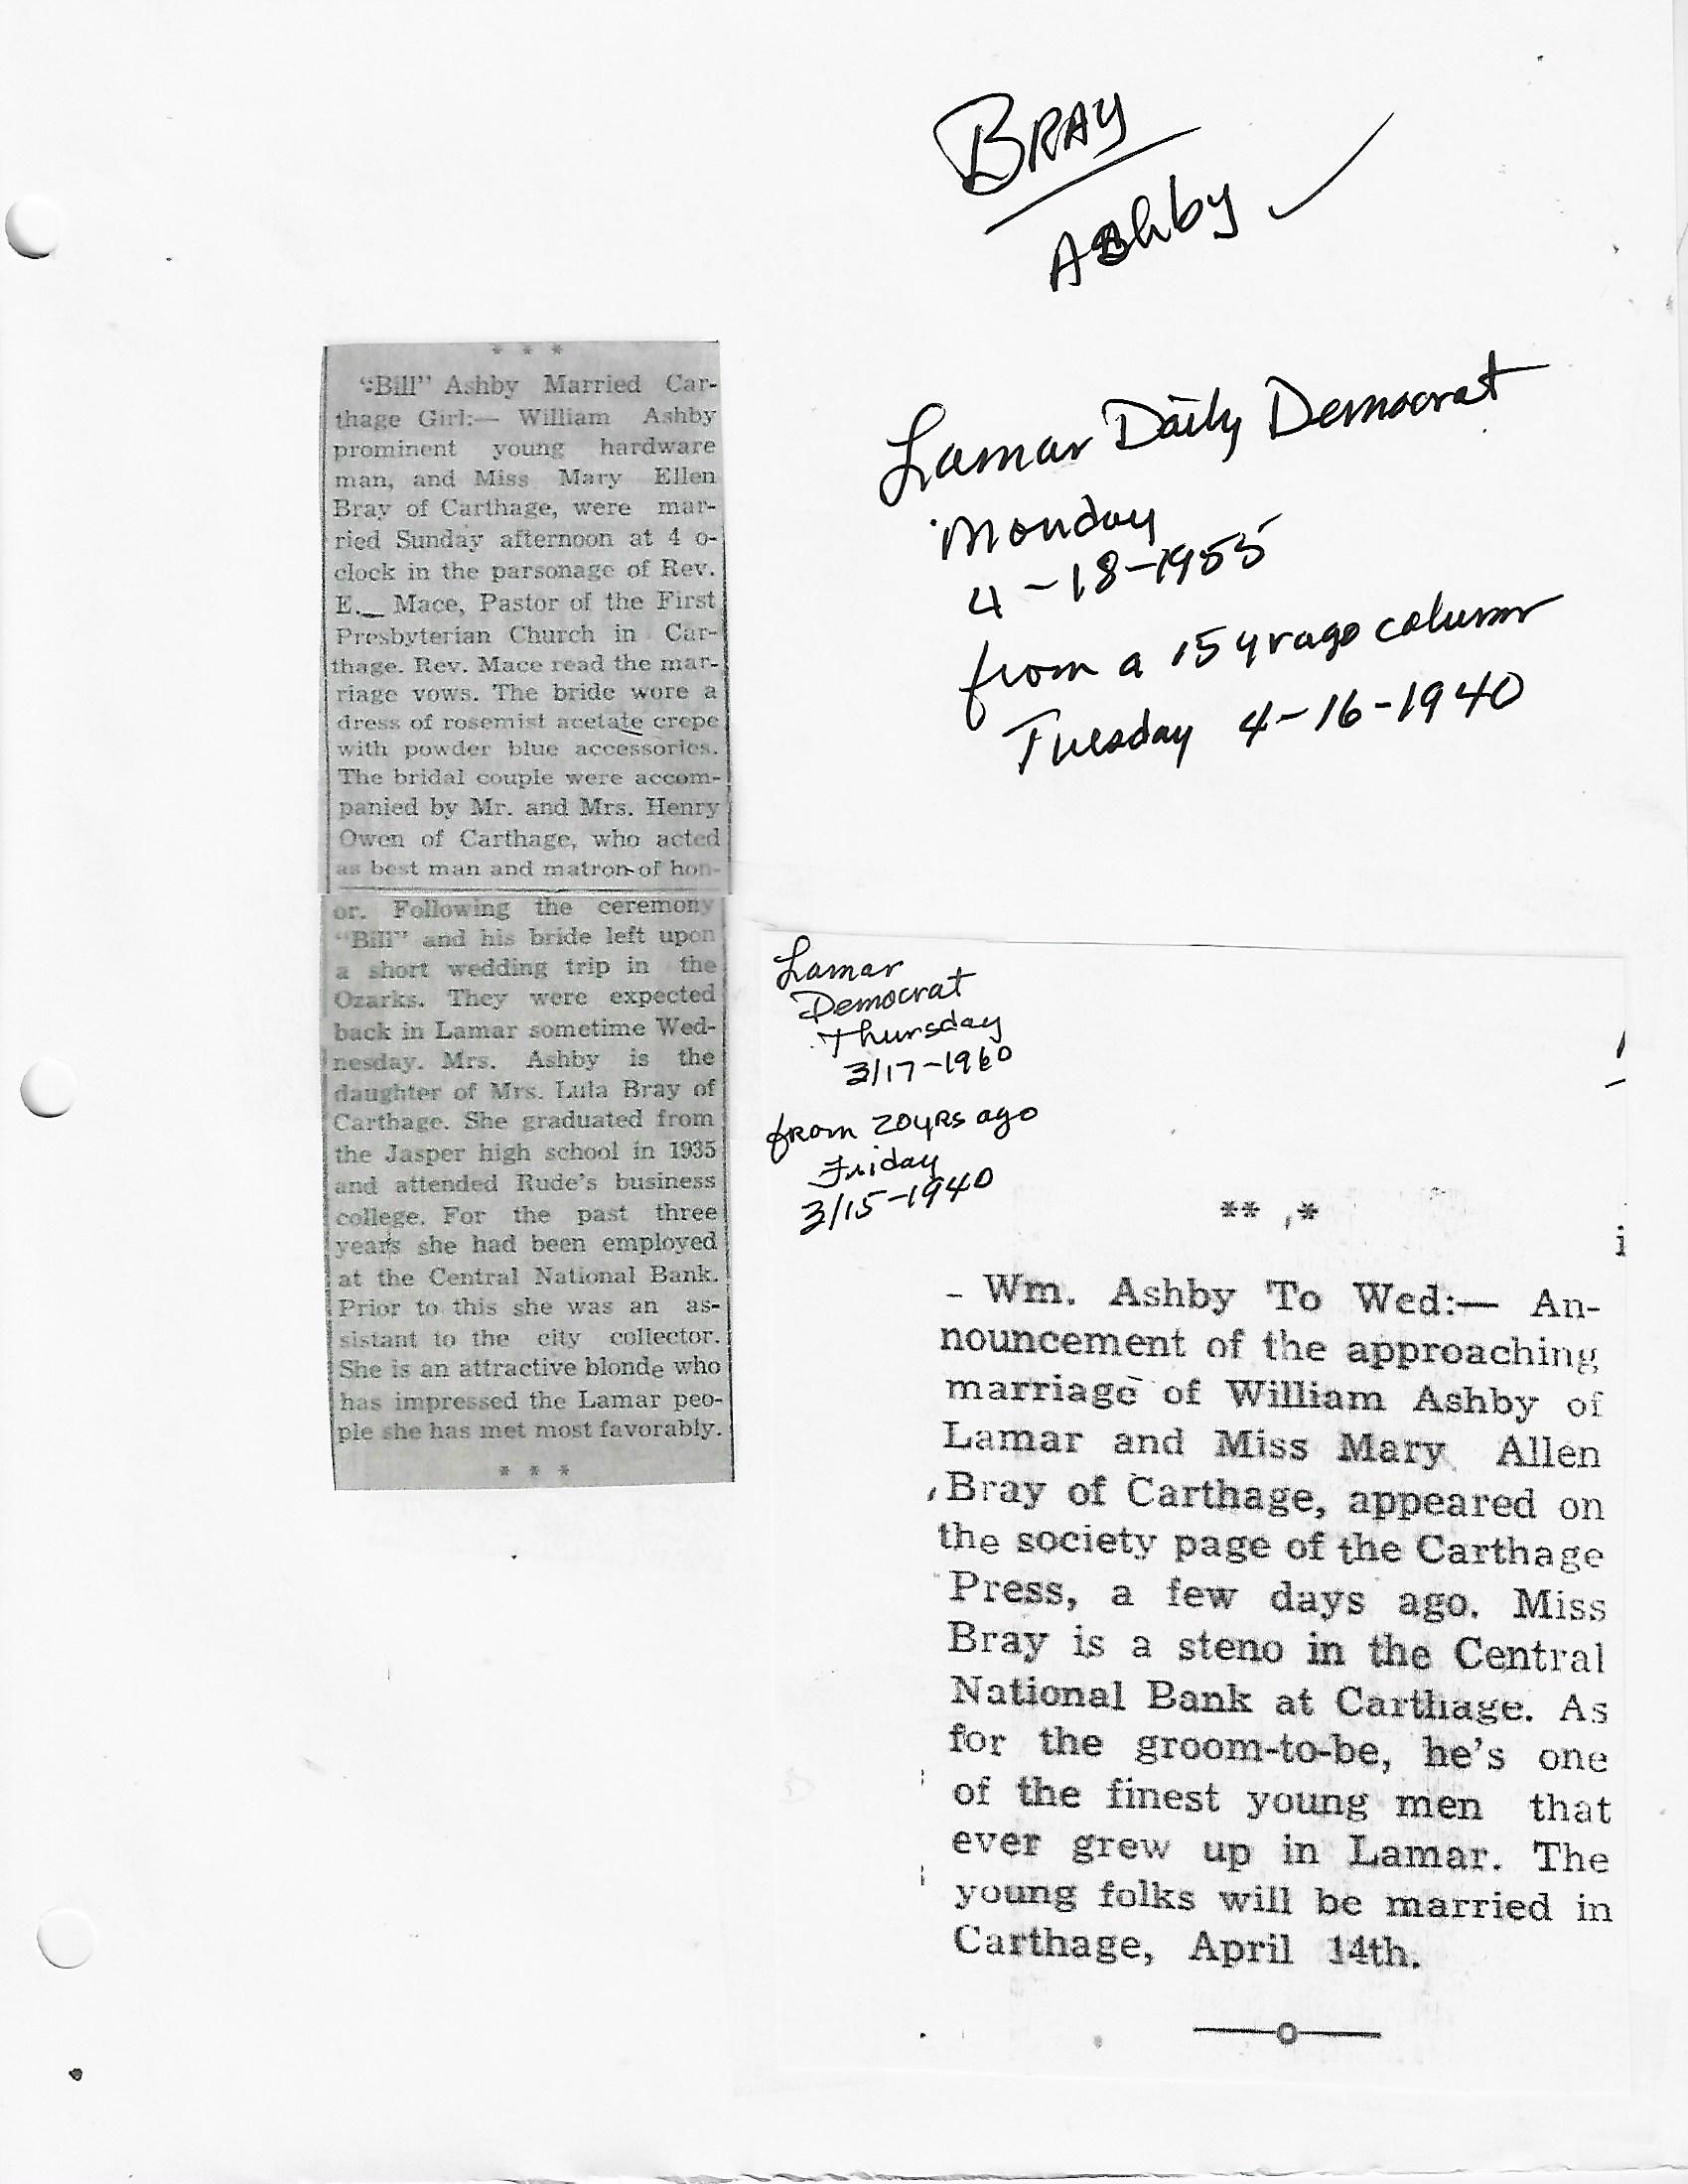 BRAY
Ashby
Lamar Daily Democrat
Monday
4-18-1955
from a 15 yr ago column
Tuesday 4-16-1940
* * *
"Bill" Ashby Married Car-
thage Girl:— William Ashby
prominent young hardware
man, and Miss Mary Ellen
Bray of Carthage, were mar-
ried Sunday afternoon at 4 o-
clock in the parsonage of Rev.
E. Mace, Pastor of the First
Presbyterian Church in Car-
thage. Rev. Mace read the mar-
riage vows. The bride wore a
dress of rosemist acetate crepe
with powder blue accessories.
The bridal couple were accom-
panied by Mr. and Mrs. Henry
Owen of Carthage, who acted
as best man and matron of hon-
or. Following the ceremony
"Bill" and his bride left upon
a short wedding trip in the
Ozarks. They were expected
back in Lamar sometime Wed-
nesday. Mrs. Ashby is the
daughter of Mrs. Lula Bray of
Carthage. She graduated from
the Jasper high school in 1935
and attended Rude's business
college. For the past three
years she had been employed
at the Central National Bank.
Prior to this she was an as-
sistant to the city collector.
She is an attractive blonde who
has impressed the Lamar peo-
ple she has met most favorably.
* * *
Lamar
Democrat
Thursday
3/17-1960
from 20 yrs ago
Friday
3/15-1940
** *
Wm. Ashby To Wed:— An-
nouncement of the approaching
marriage of William Ashby of
Lamar and Miss Mary Allen
Bray of Carthage, appeared on
the society page of the Carthage
Press, a few days ago. Miss
Bray is a steno in the Central
National Bank at Carthage. As
for the groom-to-be, he's one
of the finest young men that
ever grew up in Lamar. The
young folks will be married in
Carthage, April 14th.